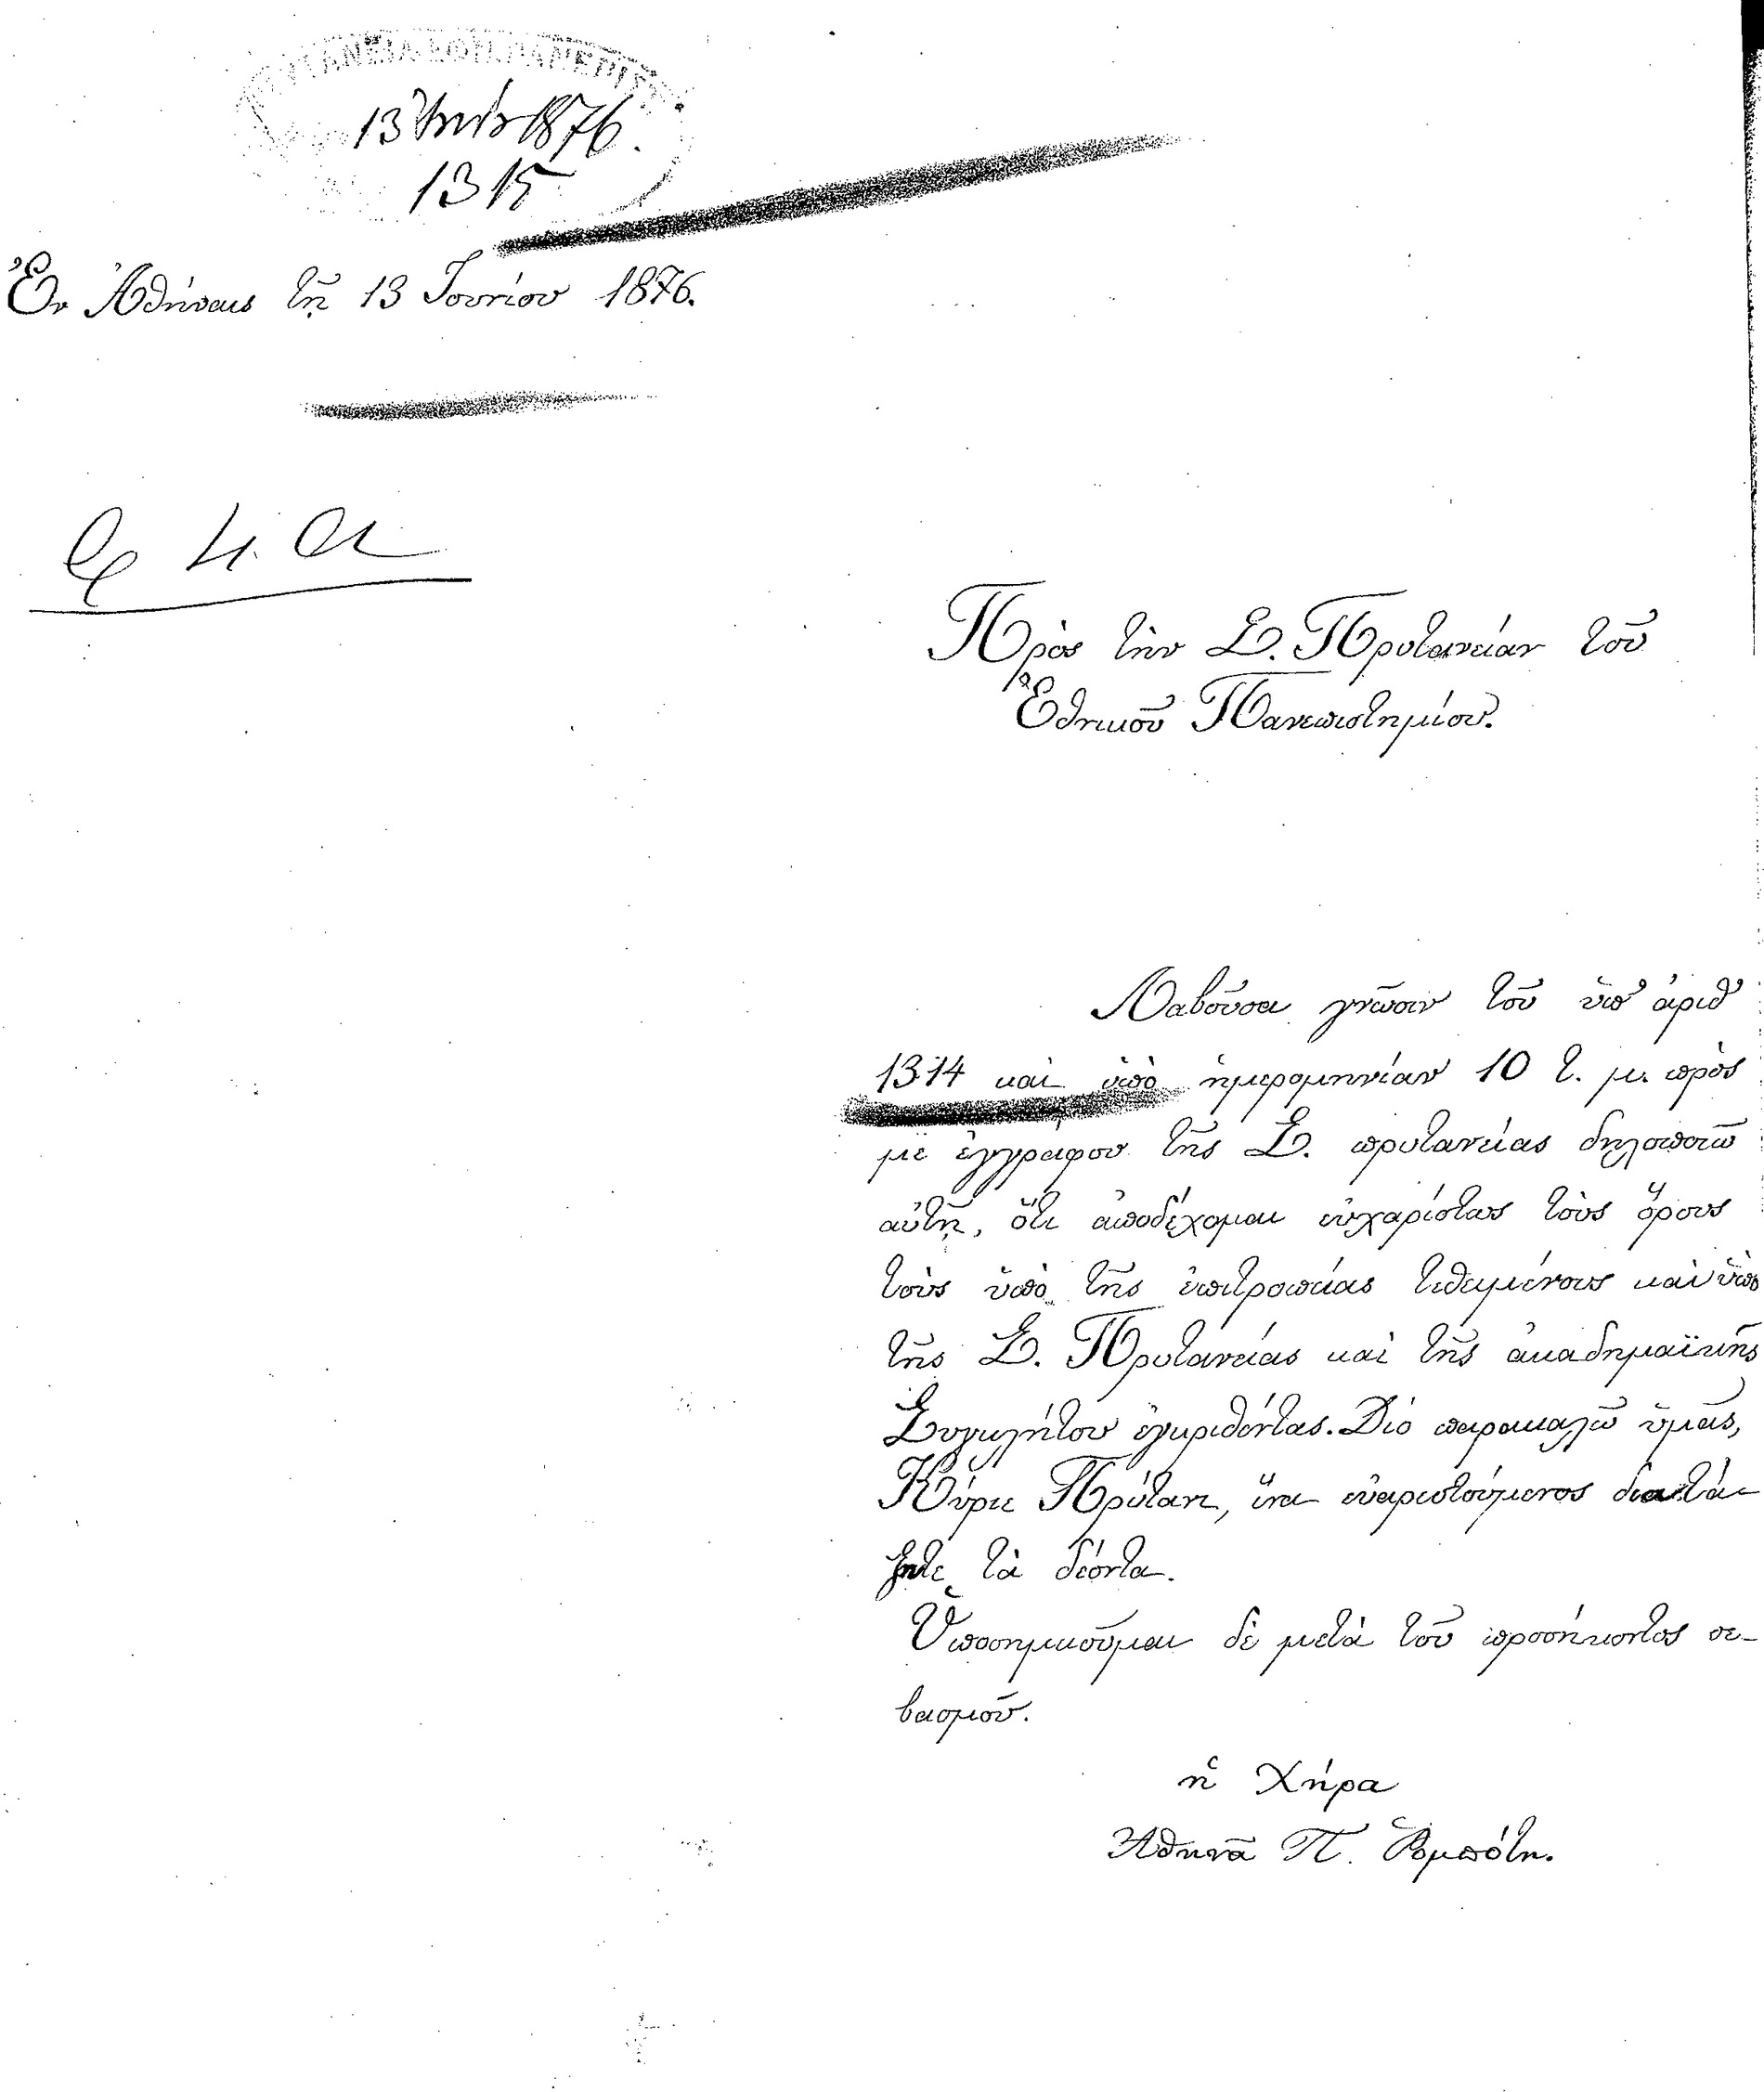 13 Ἰουνίου 1876
1315
Ἐν Ἀθήναις τῇ 13 Ἰουνίου 1876.
Πρὸς τὴν Σ. Πρυτανείαν τοῦ
Ἐθνικοῦ Πανεπιστημίου.
Λαβοῦσα γνῶσιν τοῦ ὑπ' ἀριθ
1314 καὶ ὑπὸ ἡμερομηνίαν 10 τ. μ. πρὸς
μὲ ἐγγράφου τῆς Σ. πρυτανείας δηλοποιῶ
αὐτῇ, ὅτι ἀποδέχομαι εὐχαρίστως τοὺς ὅρους
τοὺς ὑπὸ τῆς ἐπιτροπείας τεθειμένους καὶ ὑπὸ
τῆς Σ. Πρυτανείας καὶ τῆς ἀκαδημαϊκῆς
Συγκλήτου ἐγκριθέντας. Διὸ παρακαλῶ ὑμᾶς,
Κύριε Πρύτανι, ἵνα εὐαρεστούμενος διατά-
ξητε τὰ δέοντα.
Ὑποσημειοῦμαι δὲ μετὰ τοῦ προσήκοντος σε-
βασμοῦ.
ἡ Χήρα
Ἀθηνᾶ Π. Ῥομπότη.